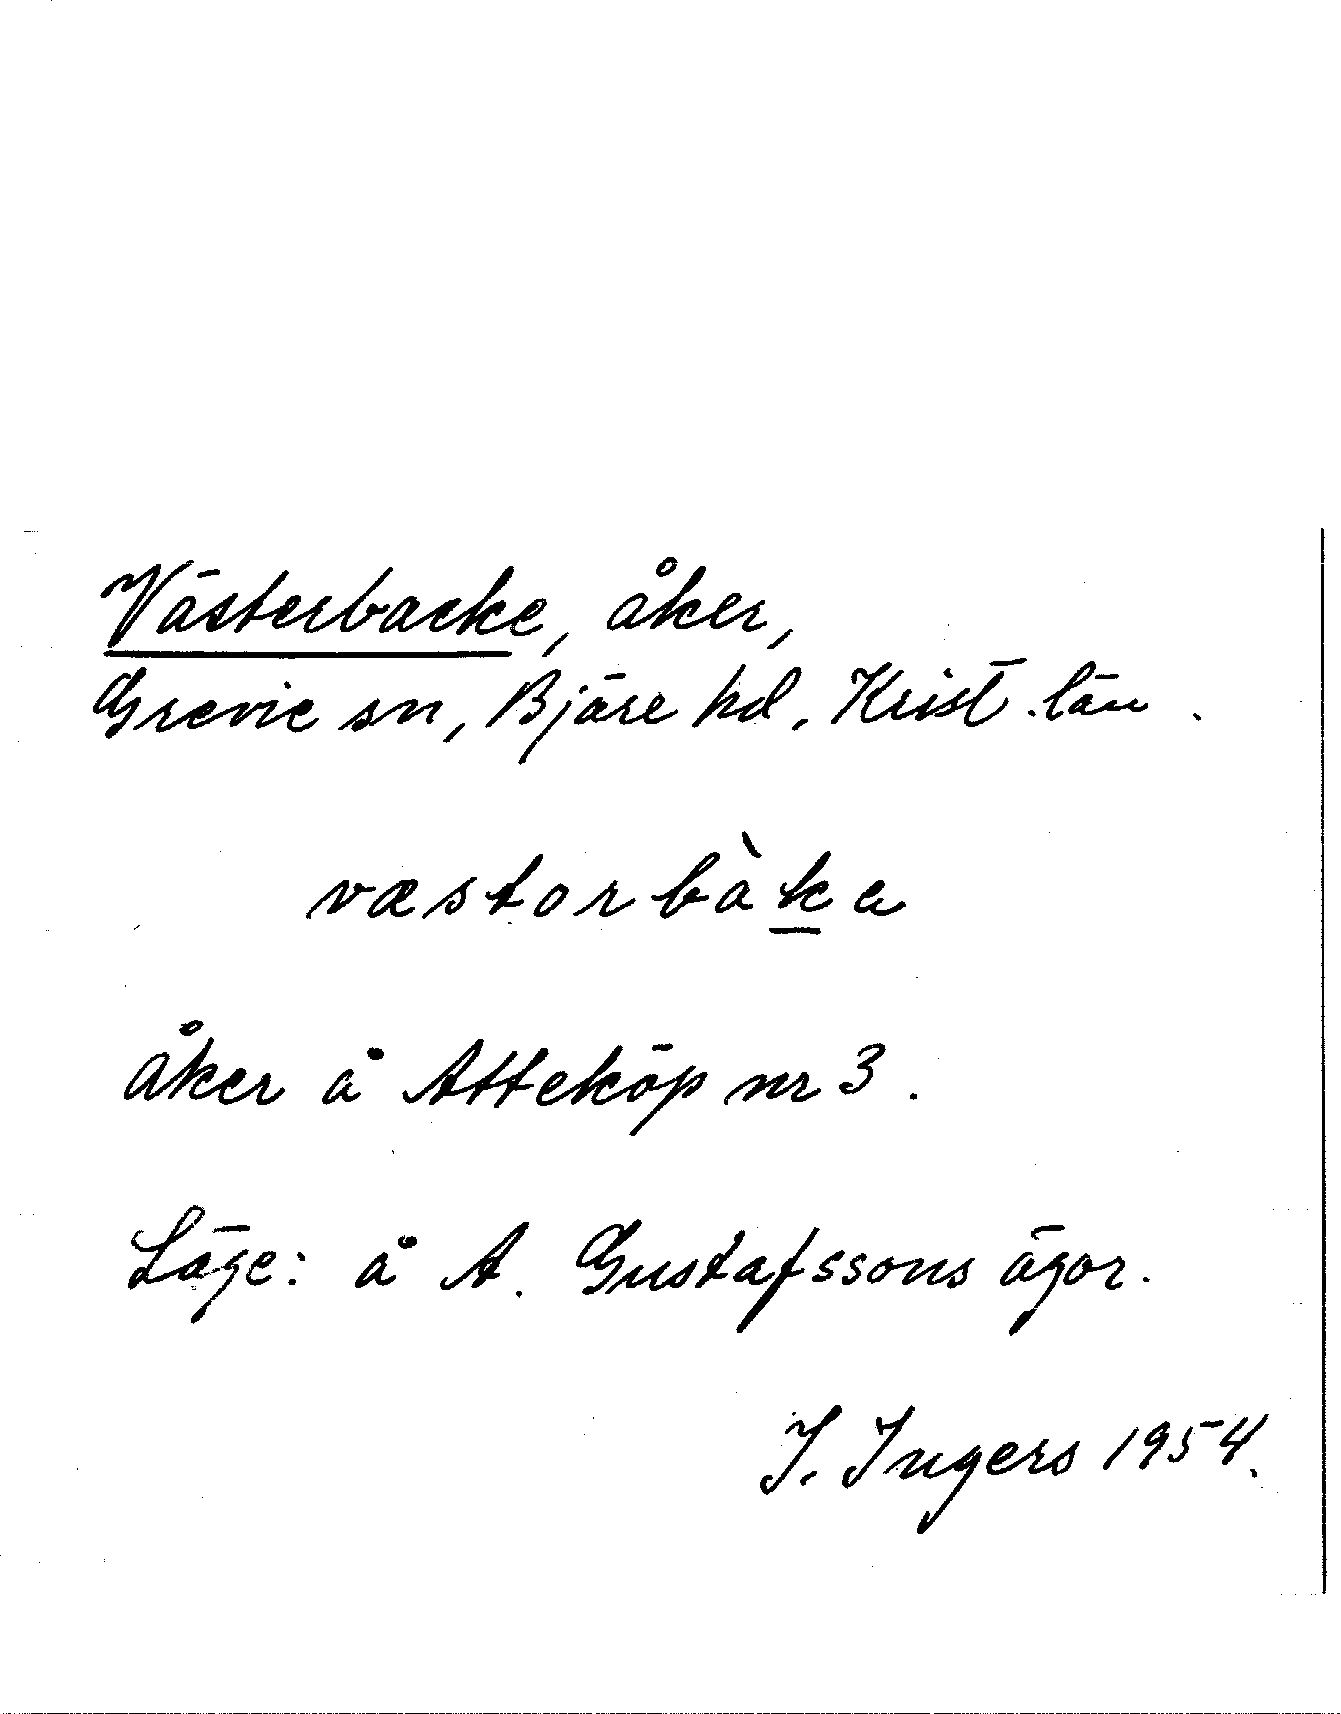 Västerbacke, åker,
Grevie sn, Bjäre hd, Krist. län.
væstorbàka
åker å Atteköp nr 3.
Läge: å A. Gustafssons ägor.
I. Ingers 1954.